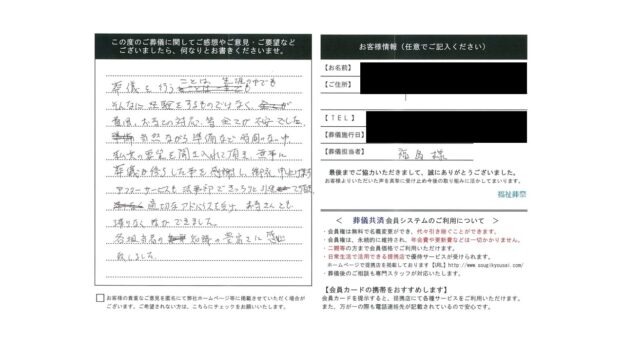 この度のご葬儀に関してご感想やご意見・ご要望など
ございましたら、何なりとお書きくださいませ。
葬儀を行うことは 生涯の中でも
そんなに 経験をするものではなく、
費用、お寺との対応、皆 全てが 不安でした。
当然ながら 準備など 時間のない中
私共の要望を聞き入れて頂き、無事に
葬儀を終らした事を感謝し 御礼 申し上げます
アフターサービスも
適切なアドバイスを頂き、お寺さんとも
滞りなく 進め できました。
知識の豊富さに 感心
致しました。
お客様の貴重なご意見を匿名にて弊社ホームページ等に掲載させていただく場合が
ございます。ご希望されない方は、こちらにチェックをお願いいたします。
お客様情報（任意でご記入ください）
【お名前】
【ご住所】
【ＴＥＬ】
【葬儀施行日】
【葬儀担当者】 福島 様
最後までご協力いただきまして、誠にありがとうございました。
お客様よりいただいた声を真摯に受け止め今後の取り組みに活かしてまいります。
福祉葬祭
＜ 葬儀共済 会員システムのご利用について ＞
・会員権は無料で名義変更ができ、代々引き継ぐことができます。
・会員権は、永続的に維持され、年会費や更新費などは一切かかりません。
・二親等の方まで会員価格でご利用いただけます。
・日常生活で活用できる提携店で優待サービスが受けられます。
ホームページで提携店を掲載しております【URL】http://www.sougikyousai.com/
・葬儀後のご相談も専門スタッフが対応いたします。
【会員カードの携帯をおすすめします】
会員カードを提示すると、提携店にて各種サービスをご利用いただけます。
また、万が一の際も電話連絡先が記載されているので安心です。